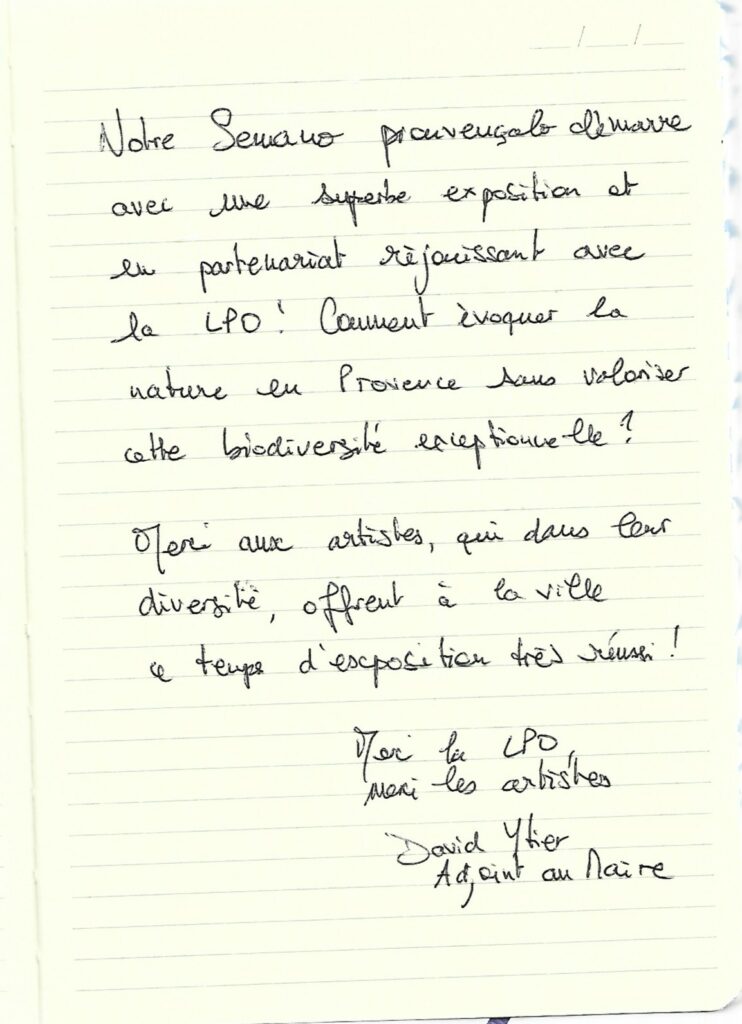 Notre Semano prouvençalo démarre
avec une superbe exposition et
en partenariat réjouissant avec
la LPO ! Comment évoquer la
nature en Provence sans valoriser
cette biodiversité exceptionnelle ?
Merci aux artistes, qui dans leur
diversité, offrent à la ville
ce temps d'exposition très réussi !
Merci la LPO,
merci les artistes
David Ytier
Adjoint au Maire